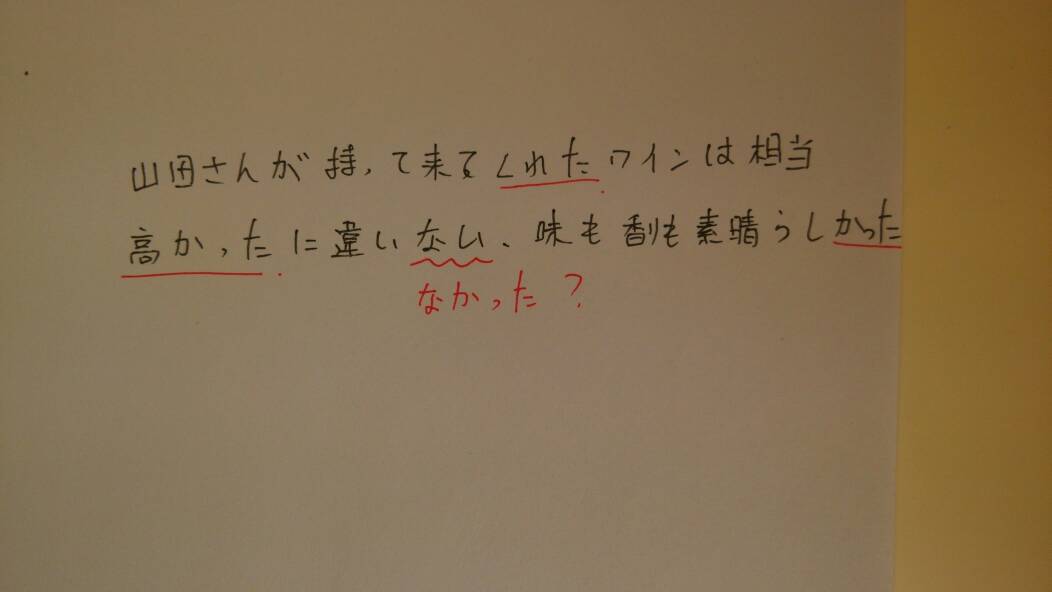 山田さんが持って来てくれたワインは相当
高かったに違いない、味も香りも素晴らしかった
なかった?